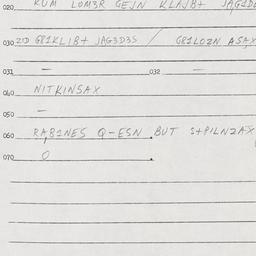 020 KUM LOM3R GEJN KLAJB+ JAG1D
030 ZID GR1KLIB+ JAG3D3S / GR1LOZN ASAX
031 — 032 —
040 NITKINSAX
050 —
060 RAB1NES Q-ESN BUT S+PILNZAX
070 0